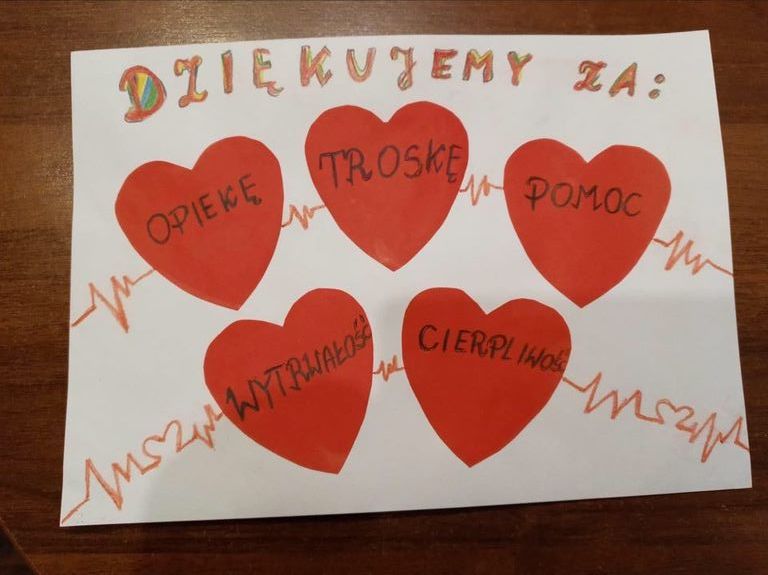 DZIĘKUJEMY ZA:
OPIEKĘ
TROSKĘ
POMOC
WYTRWAŁOŚĆ
CIERPLIWOŚĆ